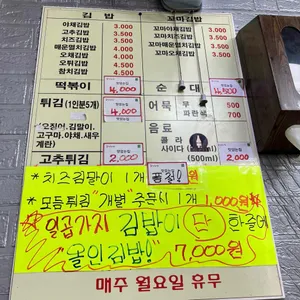 김 밥
야채김밥 3.000
고추김밥 3.500
치즈김밥 3.500
매운멸치김밥 4.000
오채김밥 4.000
오뎅김밥 4.500
참치김밥 4.500
꼬마김밥
꼬마야채김밥 3.500
꼬마치즈김밥 3.500
꼬마매운멸치김밥 3.500
꼬마오채김밥 3.500
떡볶이 4,000
튀김 (1인분5개) 4,000
(오징어.김말이.
고구마.야채.새우
계란)
고추튀김 2,000
순 대 4,500
어묵 부산 500
파란 700
음료
콜 라
사이다 (500ml) 2,000
* 치즈김말이 1개 품절
* 모듬튀김 "개별" 주문시 1개 1,000원
☆ 일곱가지 김밥이 단 한줄에
"올인김밥!" 7,000원
매주 일요일 휴무